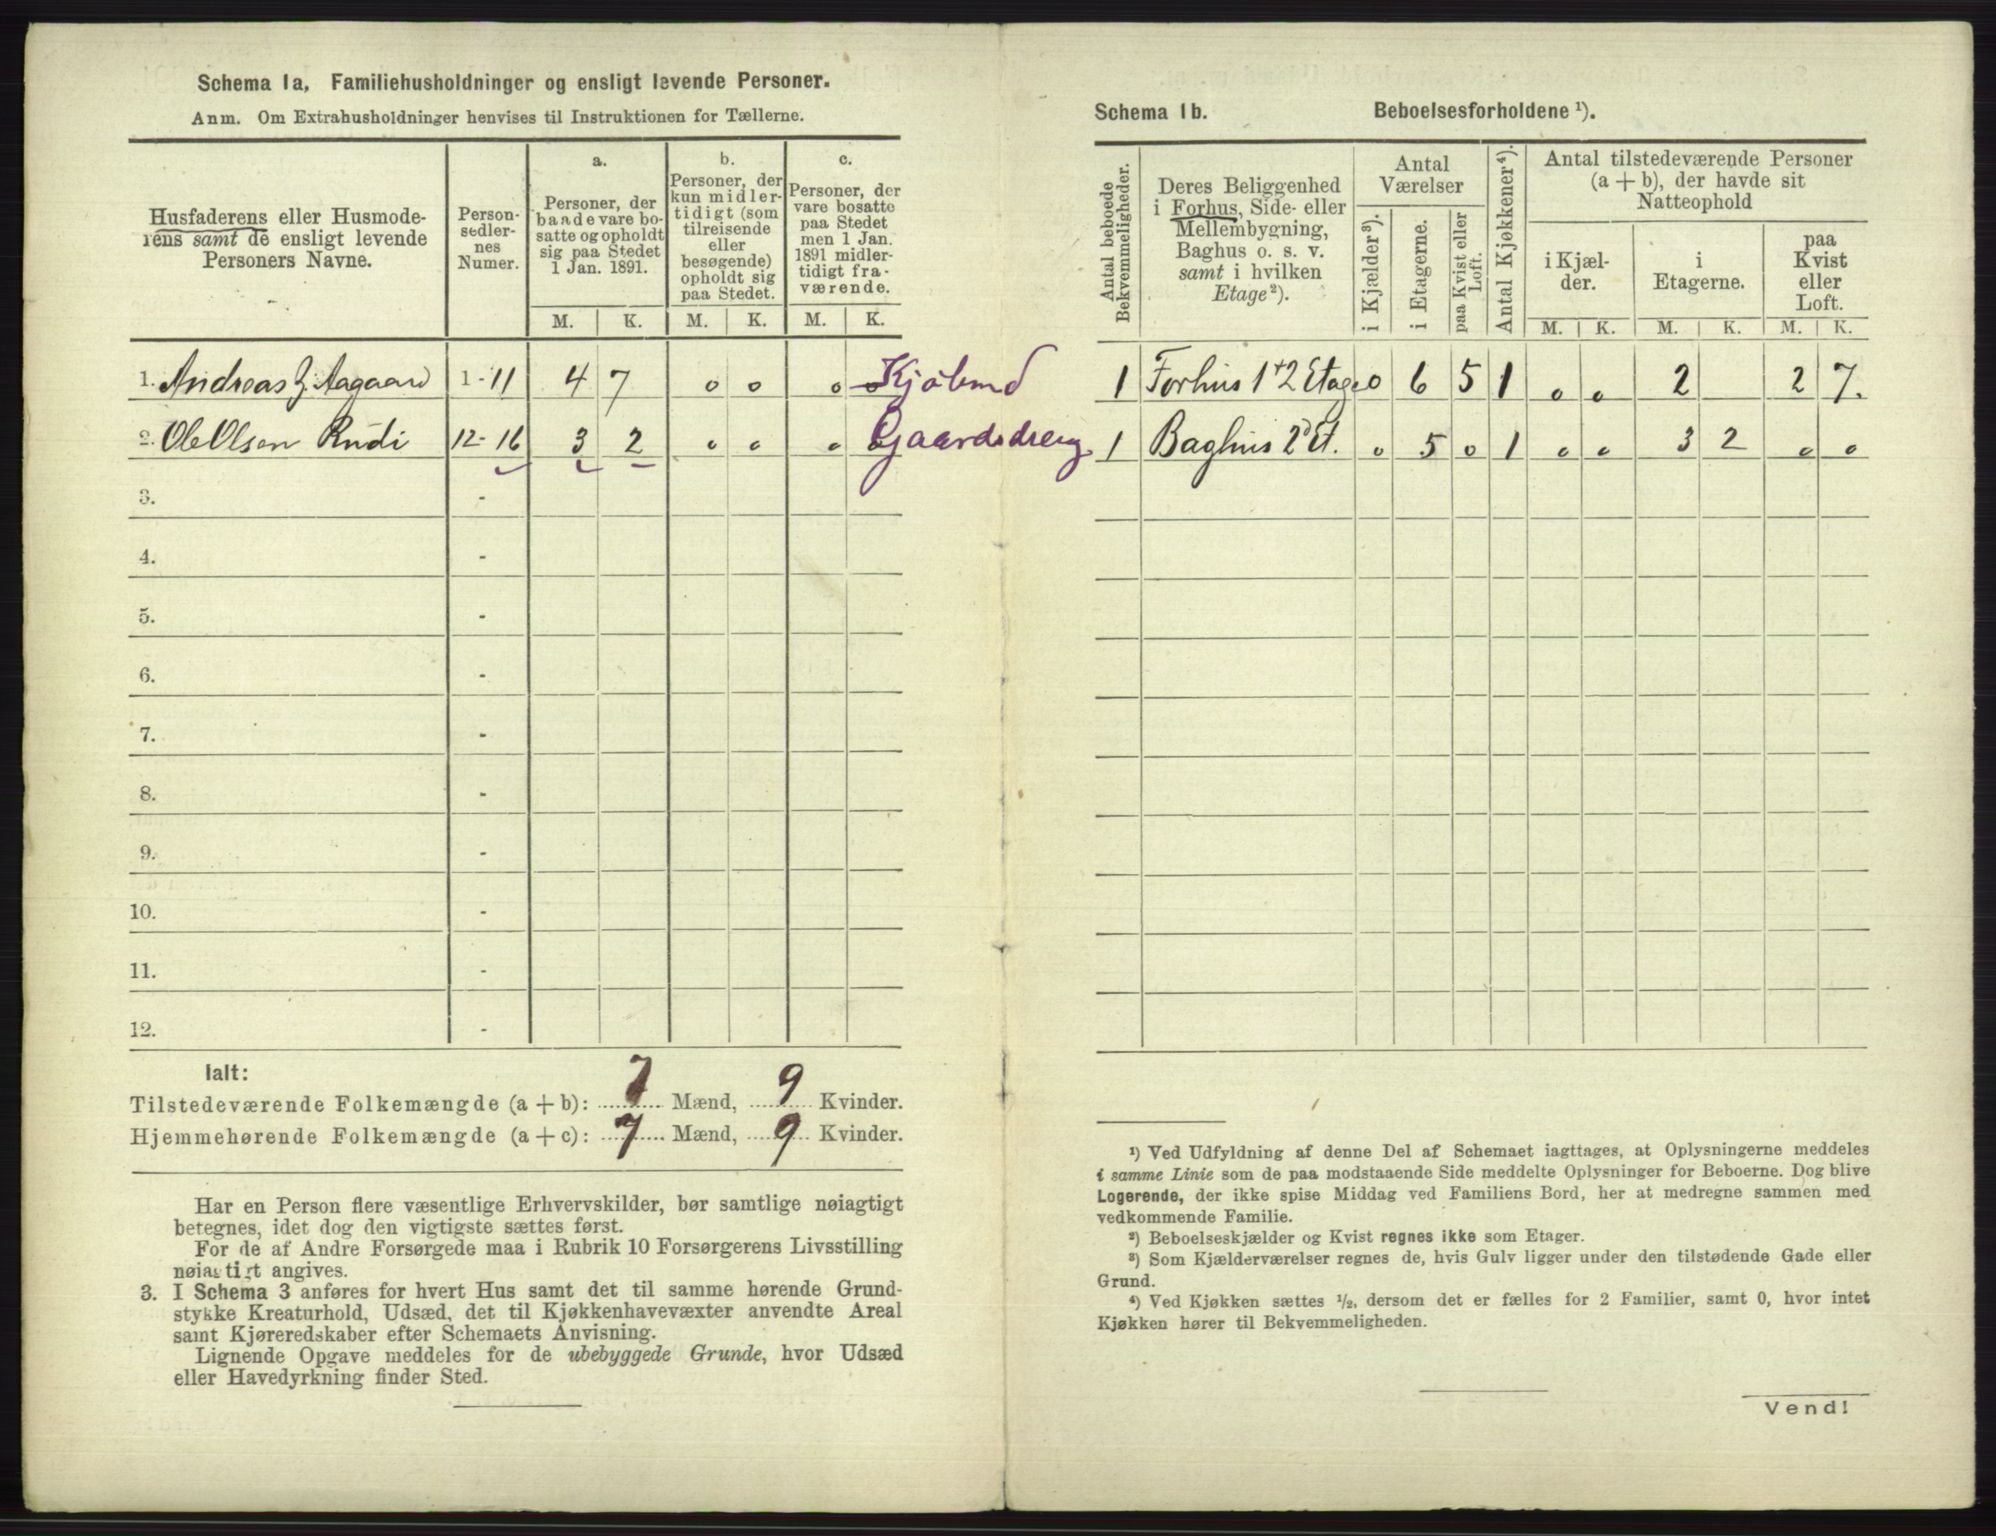 Schema 1a, Familiehusholdninger og ensligt levende Personer.
Anm. Om Extrahusholdninger henvises til Instruktionen for Tællerne.
Husfaderens eller Husmoderens samt de ensligt levende Personers Navne.
Personsedlernes Numer.
a.
Personer, der baade vare bosatte og opholdt sig paa Stedet 1 Jan. 1891.
b.
Personer, der kun midlertidigt (som tilreisende eller besøgende) opholdt sig paa Stedet.
c.
Personer, der vare bosatte paa Stedet men 1 Jan. 1891 midlertidigt fraværende.
M. K. M. K. M. K.
1. Andreas Z. Aagaard 1-11 4 7 0 0 0 0 Kjøbmd
2. Ole Olsen Rudi 12-16 3 2 0 0 0 Gaardsdreng
3. -
4. -
5. -
6. -
7. -
8. -
9. -
10. -
11. -
12. -
Ialt:
Tilstedeværende Folkemængde (a + b): 7 Mænd, 9 Kvinder.
Hjemmehørende Folkemængde (a + c): 7 Mænd, 9 Kvinder.
Har en Person flere væsentlige Erhvervskilder, bør samtlige nøiagtigt
betegnes, idet dog den vigtigste sættes først.
For de af Andre Forsørgede maa i Rubrik 10 Forsørgerens Livsstilling
nøiagtigt angives.
3. I Schema 3 anføres for hvert Hus samt det til samme hørende Grund-
stykke Kreaturhold, Udsæd, det til Kjøkkenhavevæxter anvendte Areal
samt Kjøreredskaber efter Schemaets Anvisning.
Lignende Opgave meddeles for de ubebyggede Grunde, hvor Udsæd
eller Havedyrkning finder Sted.
Schema 1b. Beboelsesforholdene ¹).
Antal beboede Bekvemmeligheder.
Deres Beliggenhed i Forhus, Side- eller Mellembygning, Baghus o. s. v. samt i hvilken Etage²).
Antal Værelser
i Kjælder³).
i Etagerne.
paa Kvist eller Loft.
Antal Kjøkkener⁴).
Antal tilstedeværende Personer (a + b), der havde sit Natteophold
i Kjælder.
i Etagerne.
paa Kvist eller Loft.
M. K. M. K. M. K.
1 Forhus 1+2 Etage 0 6 5 1 0 0 2 2 7.
1 Baghus 2 Et. 0 5 0 1 0 0 3 2 0 0
¹) Ved Udfyldning af denne Del af Schemaet iagttages, at Oplysningerne meddeles
i samme Linie som de paa modstaaende Side meddelte Oplysninger for Beboerne. Dog blive
Logerende, der ikke spise Middag ved Familiens Bord, her at medregne sammen med
vedkommende Familie.
²) Beboelseskjælder og Kvist regnes ikke som Etager.
³) Som Kjælderværelser regnes de, hvis Gulv ligger under den tilstødende Gade eller
Grund.
⁴) Ved Kjøkken sættes ½, dersom det er fælles for 2 Familier, samt 0, hvor intet
Kjøkken hører til Bekvemmeligheden.
Vend!